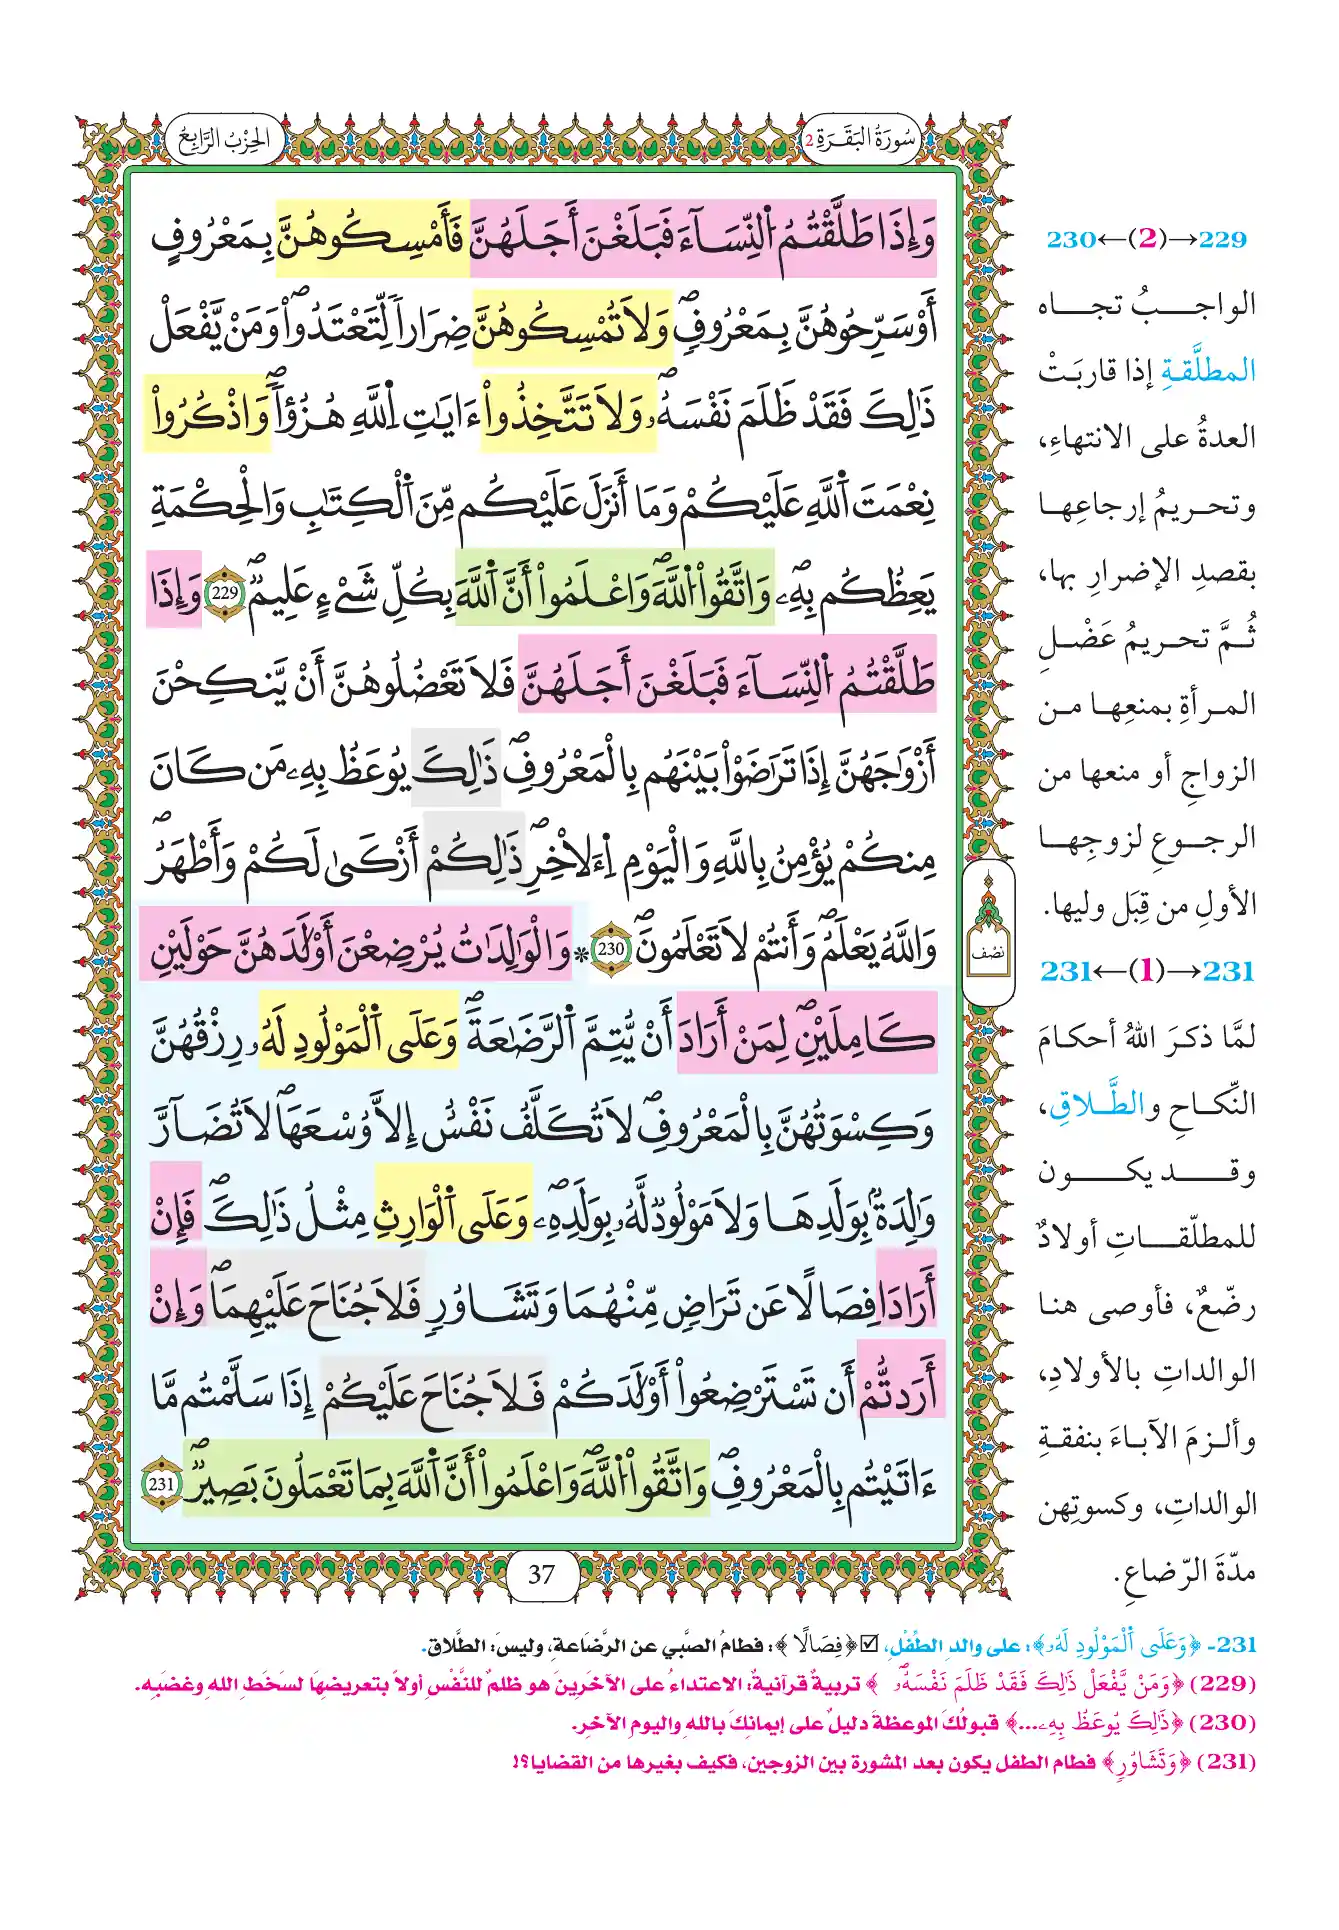 سُورَةُ البَقَرَةِ 2
الحِزْبُ الرَّابِعُ
وَإِذَا طَلَّقْتُمُ اُ۬لنِّسَآءَ فَبَلَغْنَ أَجَلَهُنَّ فَأَمْسِكُوهُنَّ بِمَعْرُوفٍ
أَوْ سَرِّحُوهُنَّ بِمَعْرُوفٖۖ وَلَا تُمْسِكُوهُنَّ ضِرَاراٗ لِّتَعْتَدُواْۖ وَمَنْ يَّفْعَلْ
ذَٰلِكَ فَقَدْ ظَلَمَ نَفْسَهُۥۖ وَلَا تَتَّخِذُوٓاْ ءَايَٰتِ اِ۬للَّهِ هُزُؤاٗۖ وَاذْكُرُواْ
نِعْمَتَ اَ۬للَّهِ عَلَيْكُمْ وَمَا أَنزَلَ عَلَيْكُم مِّنَ اَ۬لْكِتَٰبِ وَالْحِكْمَةِ
يَعِظُكُم بِهِۦۖ وَاتَّقُواْ اُ۬للَّهَۖ وَاعْلَمُواْ أَنَّ اَ۬للَّهَ بِكُلِّ شَےْءٍ عَلِيمٞۖ 229 وَإِذَا
طَلَّقْتُمُ اُ۬لنِّسَآءَ فَبَلَغْنَ أَجَلَهُنَّ فَلَا تَعْضُلُوهُنَّ أَنْ يَّنكِحْنَ
أَزْوَٰجَهُنَّ إِذَا تَرَٰضَوْاْ بَيْنَهُم بِالْمَعْرُوفِۖ ذَٰلِكَ يُوعَظُ بِهِۦ مَن كَانَ
مِنكُمْ يُؤْمِنُ بِاللَّهِ وَالْيَوْمِ اِ۬لَاخِرِۖ ذَٰلِكُمْ أَزْكَىٰ لَكُمْ وَأَطْهَرُۖ
وَاللَّهُ يَعْلَمُۖ وَأَنتُمْ لَا تَعْلَمُونَۖ 230 * وَالْوَٰلِدَٰتُ يُرْضِعْنَ أَوْلَٰدَهُنَّ حَوْلَيْنِ
كَامِلَيْنِۖ لِمَنْ أَرَادَ أَنْ يُّتِمَّ اَ۬لرَّضَٰعَةَۖ وَعَلَى اَ۬لْمَوْلُودِ لَهُۥ رِزْقُهُنَّ
وَكِسْوَتُهُنَّ بِالْمَعْرُوفِۖ لَا تُكَلَّفُ نَفْسٌ إِلَّا وُسْعَهَاۖ لَا تُضَآرَّ
وَٰلِدَةُۢ بِوَلَدِهَا وَلَا مَوْلُودٞ لَّهُۥ بِوَلَدِهِۦۖ وَعَلَى اَ۬لْوَارِثِ مِثْلُ ذَٰلِكَۖ فَإِنْ
أَرَادَا فِصَالًا عَن تَرَاضٖ مِّنْهُمَا وَتَشَاوُرٖ فَلَا جُنَاحَ عَلَيْهِمَاۖ وَإِنْ
أَرَدتُّمُ أَن تَسْتَرْضِعُوٓاْ أَوْلَٰدَكُمْ فَلَا جُنَاحَ عَلَيْكُمْ إِذَا سَلَّمْتُم مَّا
ءَاتَيْتُم بِالْمَعْرُوفِۖ وَاتَّقُواْ اُ۬للَّهَۖ وَاعْلَمُواْ أَنَّ اَ۬للَّهَ بِمَا تَعْمَلُونَ بَصِيرٞۖ 231
نصف
37
229→(2)←230
الواجبُ تجاه
المطلَّقةِ إذا قاربَتْ
العدةُ على الانتهاءِ،
وتحريمُ إرجاعِها
بقصدِ الإضرارِ بها،
ثُمَّ تحريمُ عَضْلِ
المرأةِ بمنعِها من
الزواجِ أو منعها من
الرجوعِ لزوجِها
الأولِ من قِبَل وليها.
231→(1)←231
لمَّا ذكرَ اللهُ أحكامَ
النِّكاحِ والطَّلاقِ،
وقد يكون
للمطلّقاتِ أولادٌ
رضّعٌ، فأوصى هنا
الوالداتِ بالأولادِ،
وألزمَ الآباءَ بنفقةِ
الوالداتِ، وكسوتِهن
مدّةَ الرّضاعِ.
231- ﴿وَعَلَى اَ۬لْمَوْلُودِ لَهُۥ﴾: على والدِ الطِّفْلِ، ☑ ﴿فِصَالًا﴾: فطامُ الصَّبي عن الرَّضَاعةِ، وليسَ: الطَّلاق.
(229) ﴿وَمَنْ يَّفْعَلْ ذَٰلِكَ فَقَدْ ظَلَمَ نَفْسَهُۥۖ﴾ تربيةٌ قرآنيةٌ: الاعتداءُ على الآخَرِينَ هو ظلمٌ للنَّفْسِ أولاً بتعريضِهَا لسخَطِ اللهِ وغضَبِه.
(230) ﴿ذَٰلِكَ يُوعَظُ بِهِۦ...﴾ قبولُكَ الموعظةَ دليلٌ على إيمانِكَ بالله واليوم الآخرِ.
(231) ﴿وَتَشَاوُرٖ﴾ فطام الطفل يكون بعد المشورة بين الزوجين، فكيف بغيرها من القضايا؟!